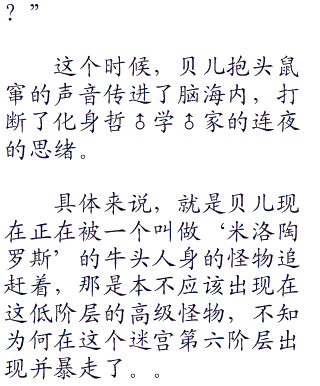 ？”
这个时候，贝儿抱头鼠
窜的声音传进了脑海内，打
断了化身哲♂学♂家的连夜
的思绪。
具体来说，就是贝儿现
在正在被一个叫做‘米洛陶
罗斯’的牛头人身的怪物追
赶着，那是本不应该出现在
这低阶层的高级怪物，不知
为何在这个迷宫第六阶层出
现并暴走了。。